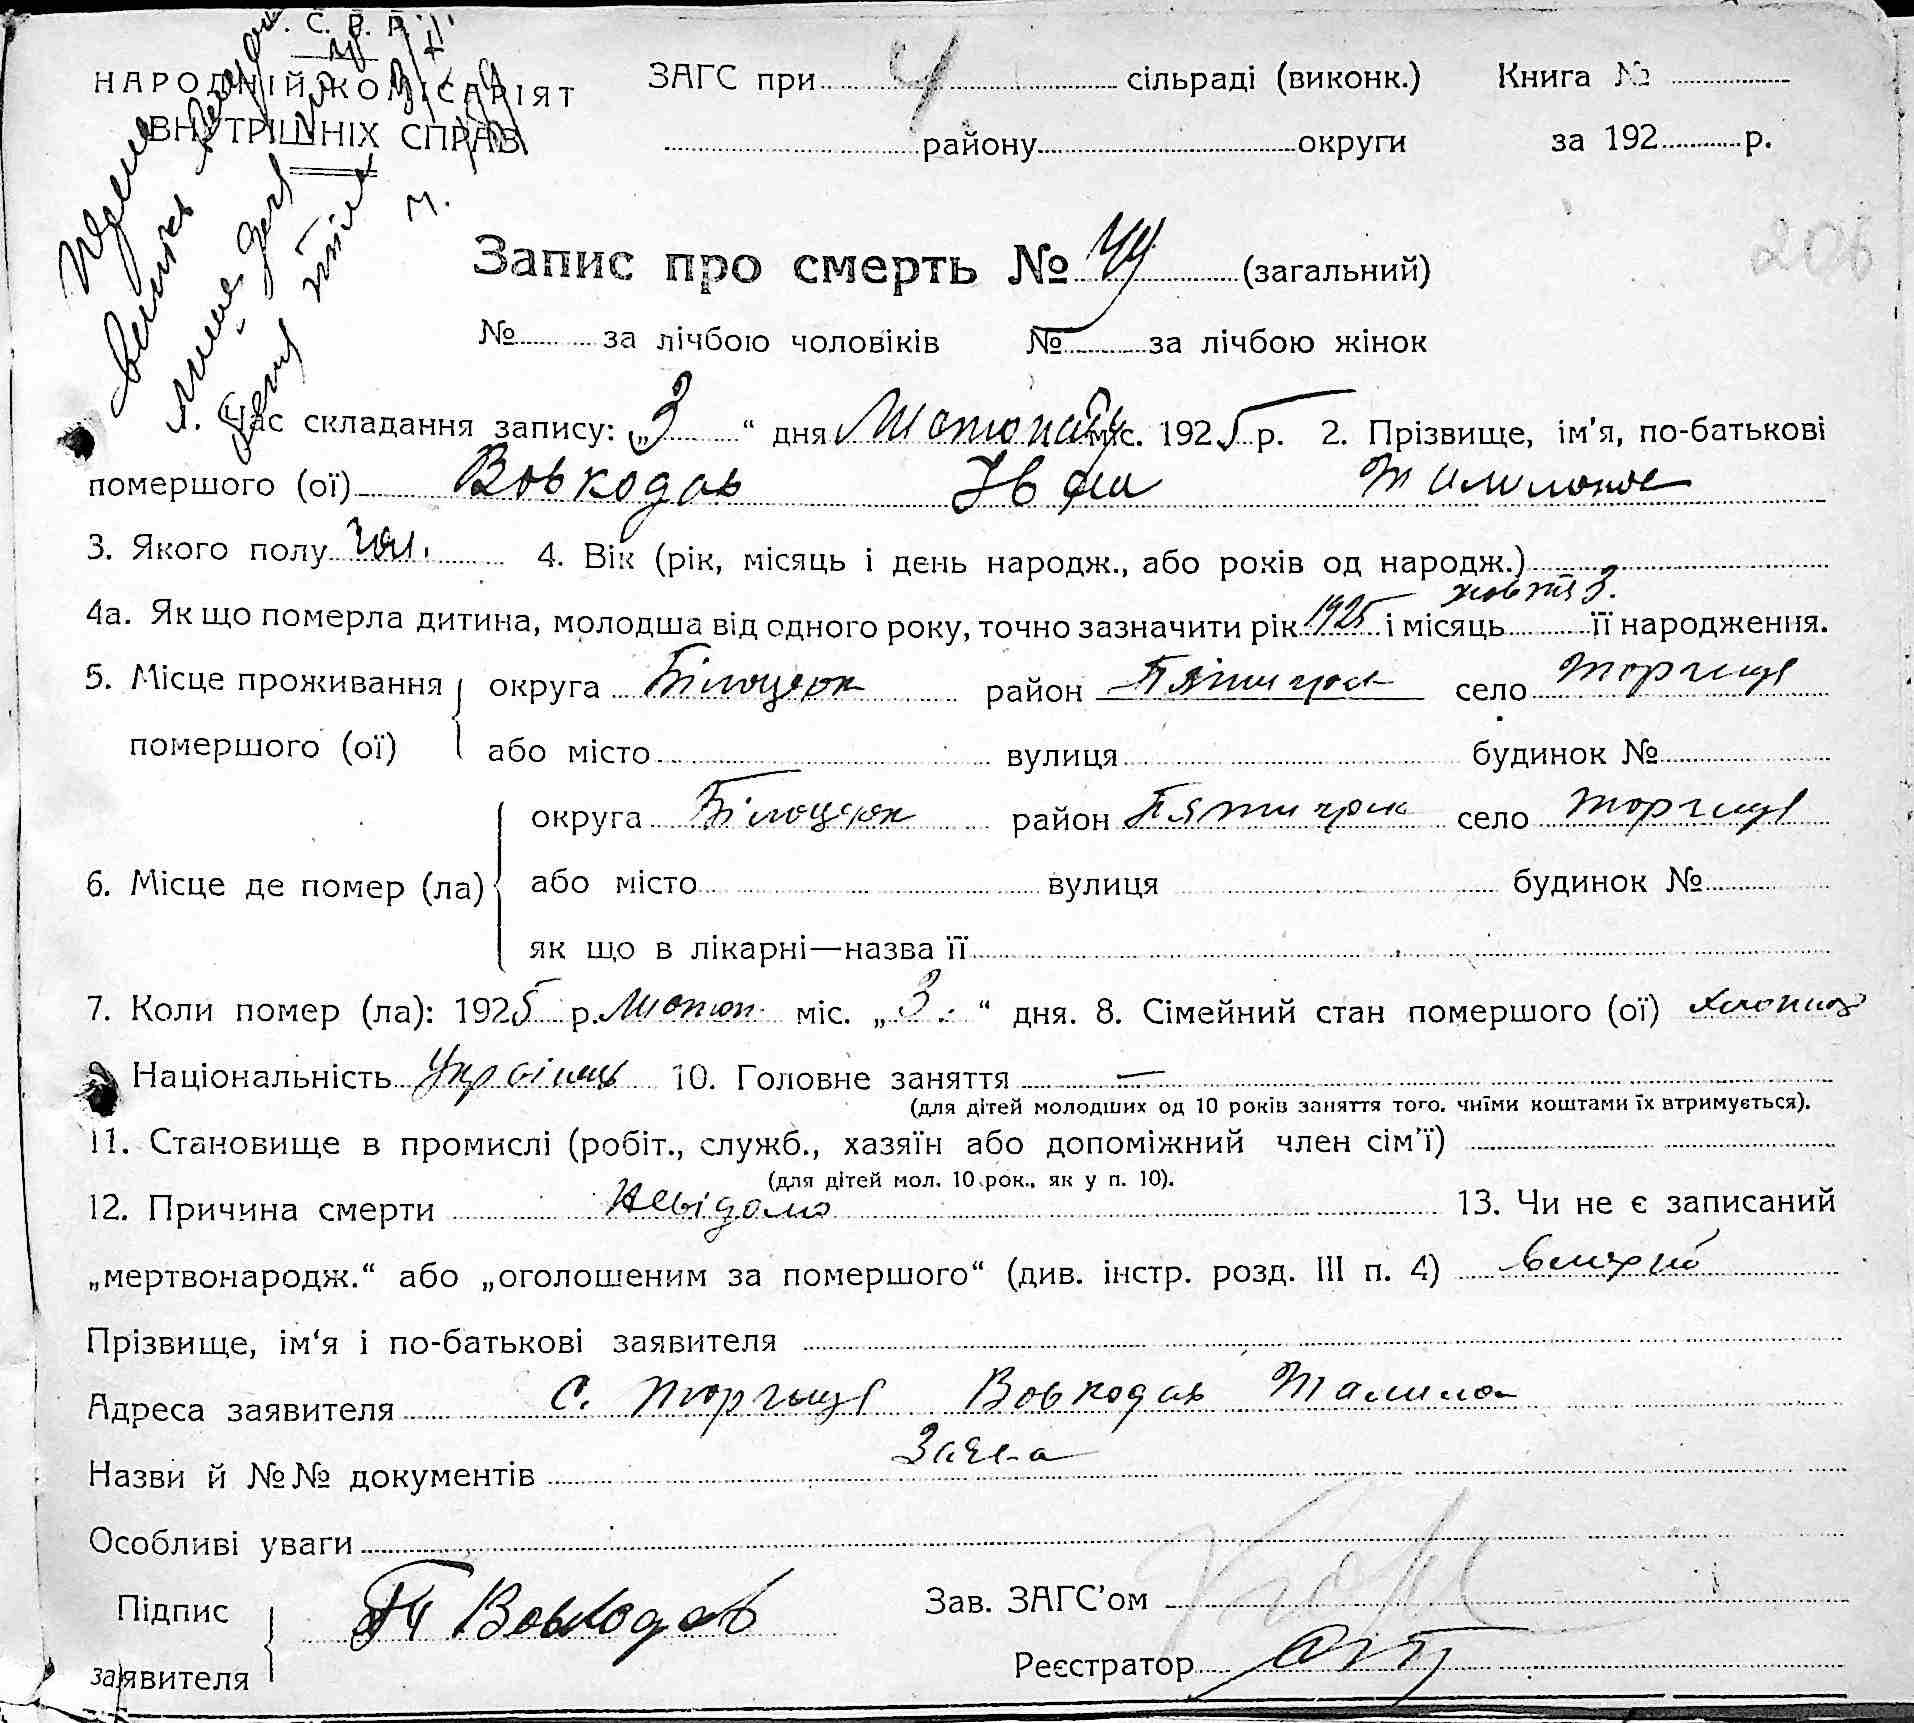 С. Р. Р.
НАРОДНІЙ КОМІСАРІЯТ
ВНУТРІШНІХ СПРАВ
ЗАГС при 4 сільраді (виконк.) Книга №
району округи за 192 р.
м.
206
Запис про смерть № 49 (загальний)
№ за лічбою чоловіків № за лічбою жінок
1. Час складання запису: „3“ дня Лютого міс. 1925 р. 2. Прізвище, ім'я, по-батькові
помершого (ої) Вовкодав Іван
3. Якого полу чол. 4. Вік (рік, місяць і день народж., або років од народж.)
4а. Як що померла дитина, молодша від одного року, точно зазначити рік 1925 і місяць її народження.
5. Місце проживання помершого (ої) округа Білоцерк район Пятигорск село Торчиця
або місто вулиця будинок №
6. Місце де помер (ла) округа Білоцерк район Пятигорск село Торчиця
або місто вулиця будинок №
як що в лікарні—назва її
7. Коли помер (ла): 1925 р. Лютого міс. „3.“ дня. 8. Сімейний стан помершого (ої) хлопець
9. Національність Українець 10. Головне заняття —
(для дітей молодших од 10 років заняття того, чиїми коштами їх втримується).
11. Становище в промислі (робіт., служб., хазяїн або допоміжний член сім'ї)
(для дітей мол. 10 рок., як у п. 10).
12. Причина смерти Невідомо 13. Чи не є записаний
„мертвонародж.“ або „оголошеним за помершого“ (див. інстр. розд. III п. 4)
Прізвище, ім'я і по-батькові заявителя
Адреса заявителя с. Торчиця Вовкодав
Назви й №№ документів
Особливі уваги
Підпис заявителя Вовкодав
Зав. ЗАГС'ом
Реєстратор